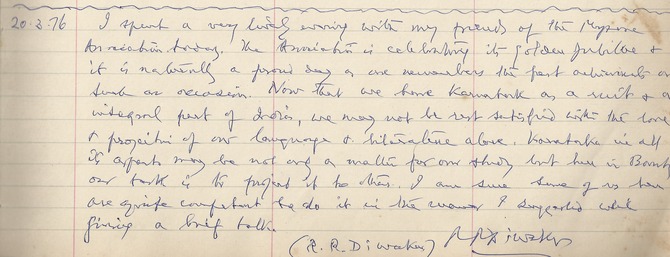 20.3.76 I spent a very lively evening with my friends of the Mysore
Association today. The Association is celebrating its golden Jubilee &
it is naturally a proud day as one remembers the past achievements on
such an occasion. Now that we have Karnatak as a unit & an
integral part of India, we may not be rest satisfied with the love
& projection of our language & literature alone. Karnataka in all
its aspects may be not only a matter for our study but here in Bombay
our task is to project it to others. I am sure some of us here
are quite competent to do it in the manner I suggested while
giving a brief talk.
(R.R. Diwakar) RRDiwakar